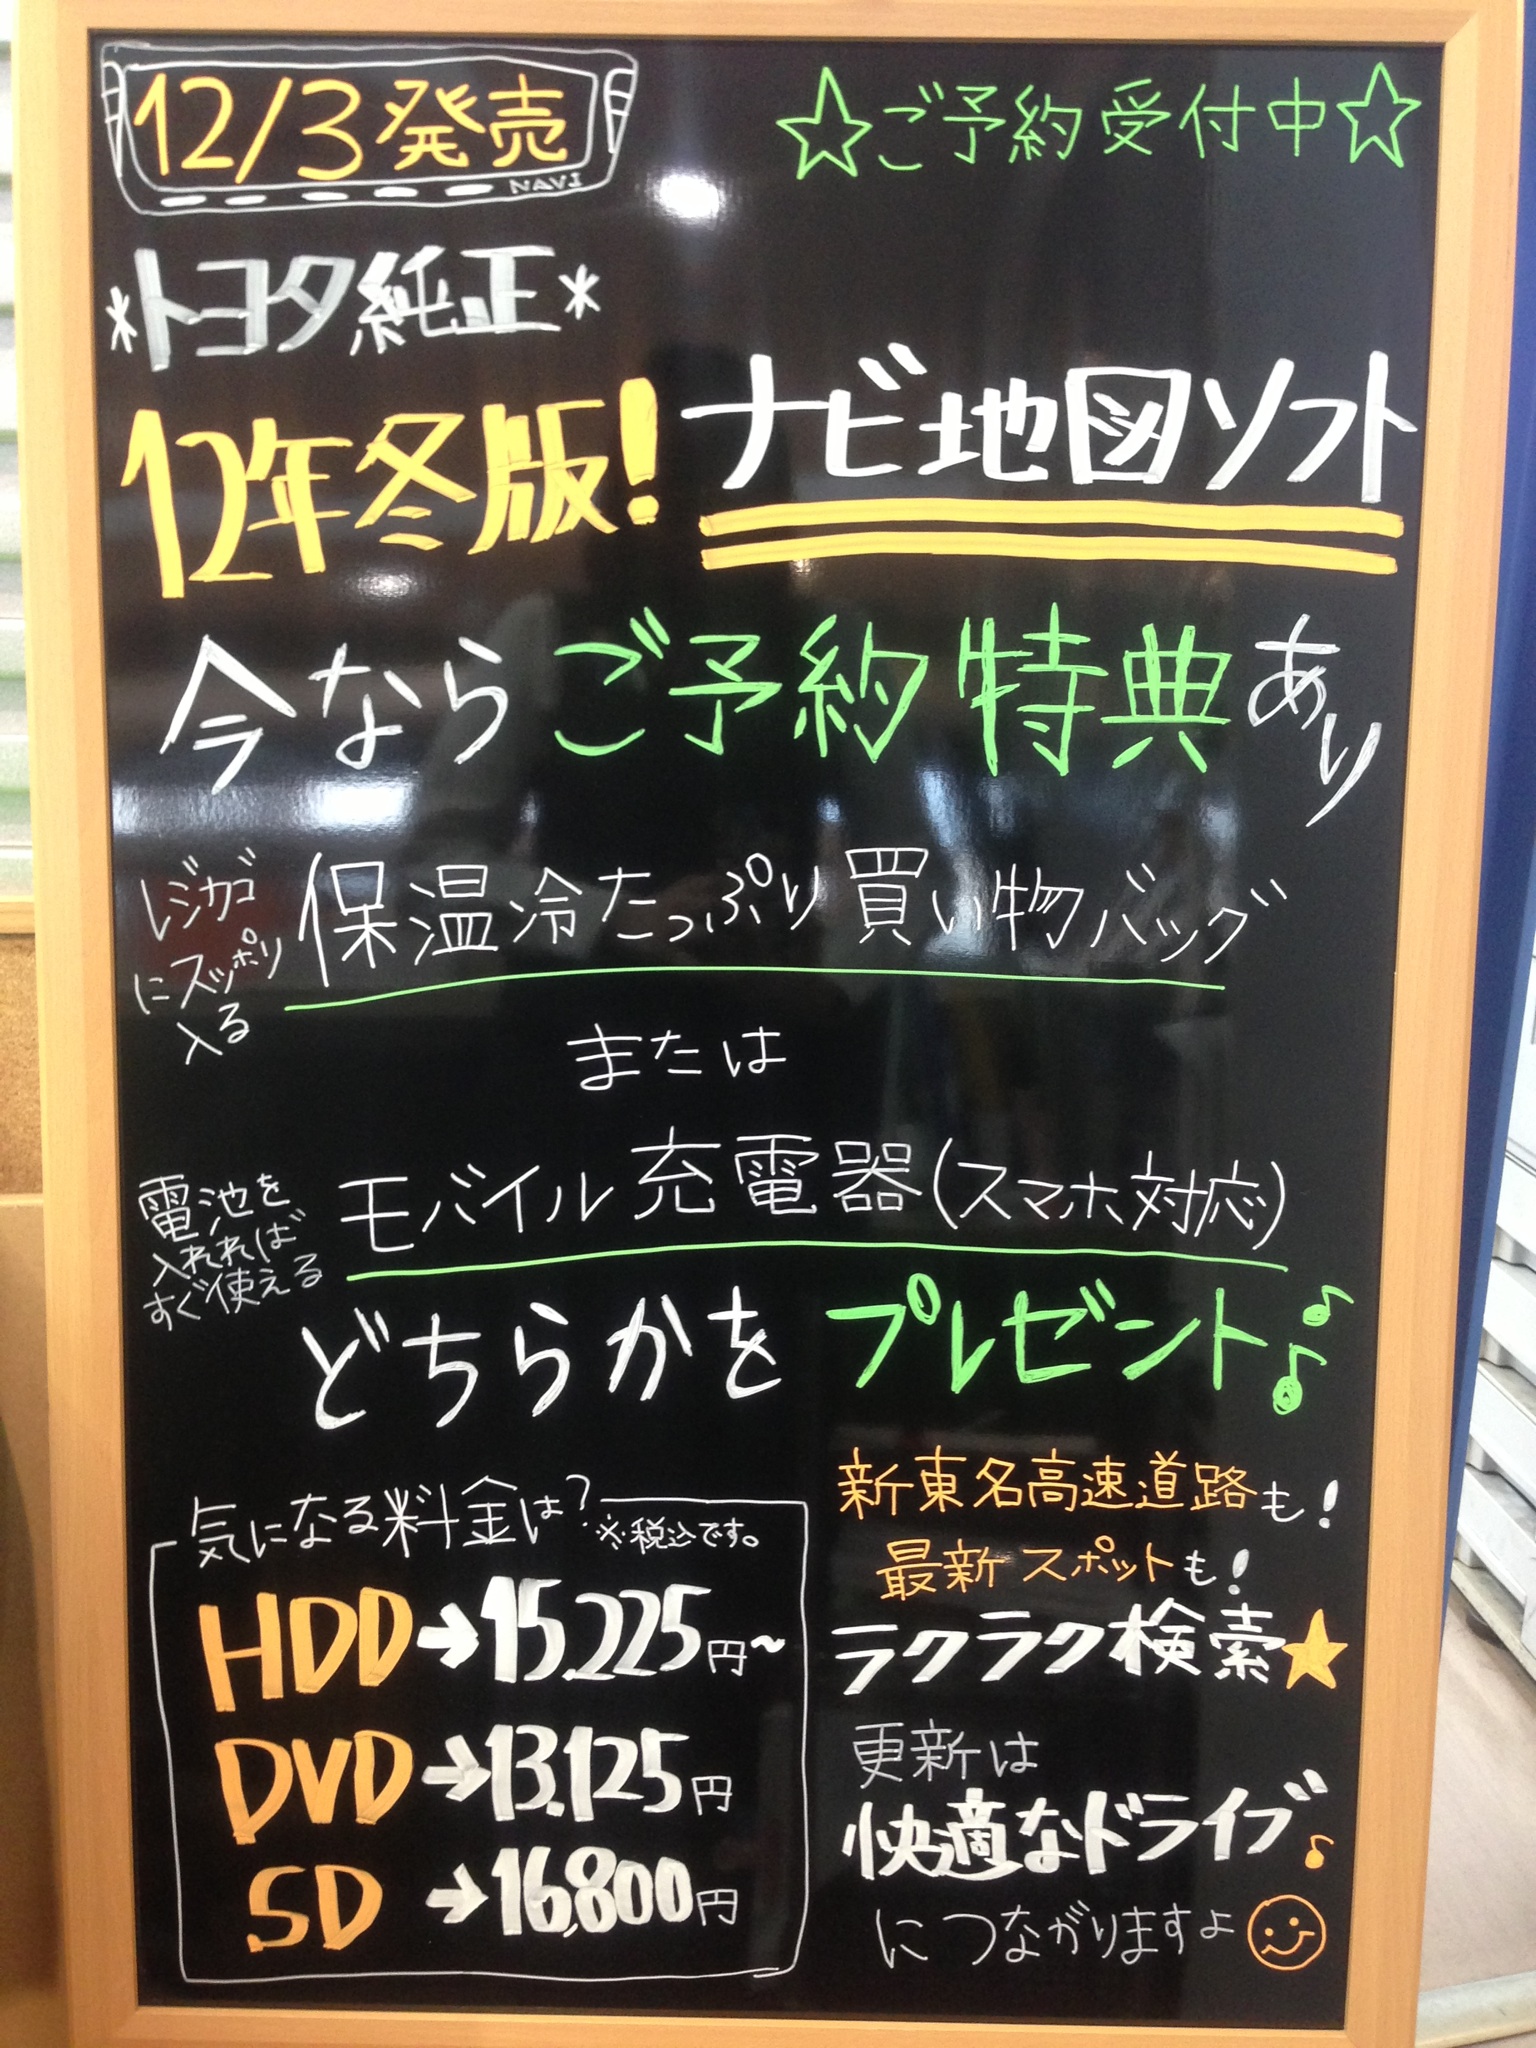 12/3発売
NAVI
☆ご予約受付中☆
*トヨタ純正*
12年冬版!
ナビ地図ソフト
今ならご予約特典あり
レジカゴ
にスッポリ
入る
保温冷たっぷり買い物バッグ
または
電池を
入れれば
すぐ使える
モバイル充電器(スマホ対応)
どちらかをプレゼント♪♪
気になる料金は?※税込です。
HDD→15.225円~
DVD→13.125円
SD→16,800円
新東名高速道路も!
最新スポットも!
ラクラク検索★
更新は
快適なドライブ♪
につながりますよ